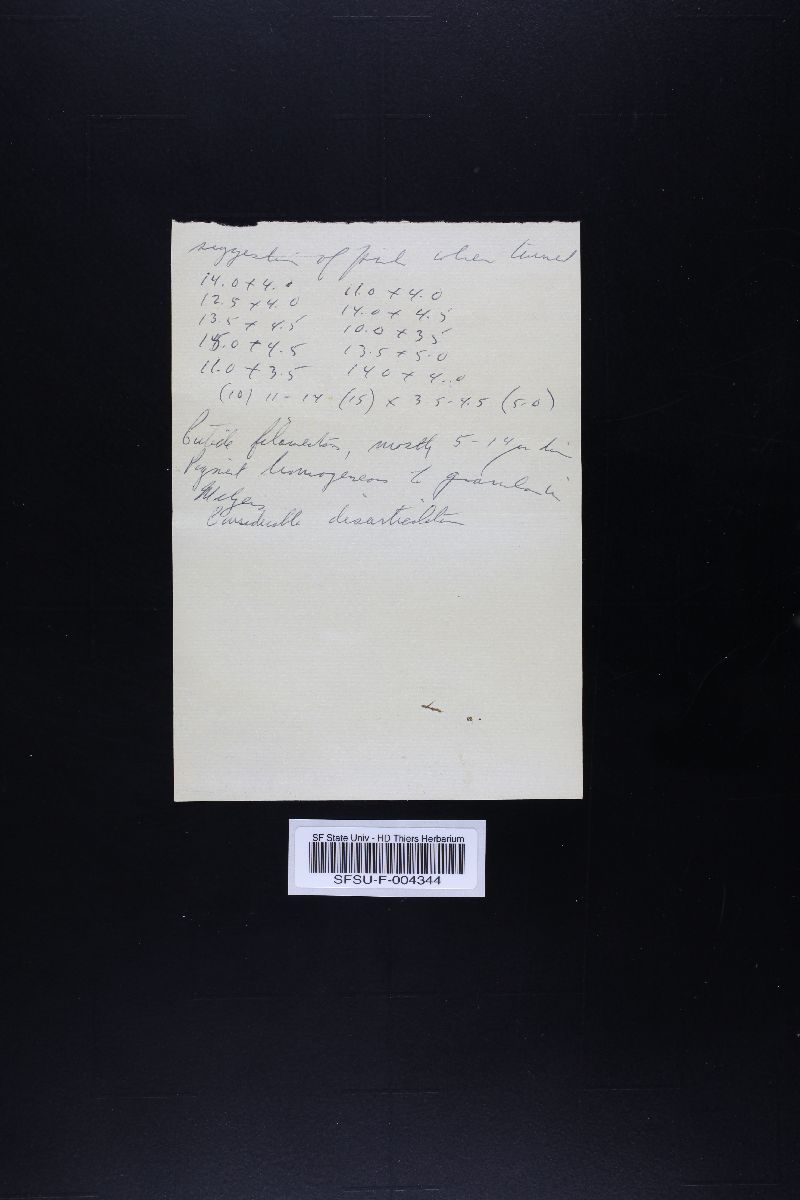 suggestion of pink when turned
14.0 x 4.0 11.0 x 4.0
12.5 x 4.0 14.0 x 4.5
13.5 x 4.5 10.0 x 3.5
15.0 x 4.5 13.5 x 5.0
11.0 x 3.5 14.0 x 4.0
(10) 11 - 14 (15) x 3.5-4.5 (5.0)
Cuticle filamentous, mostly 5-14 µ diam
Pigment homogeneous to granular in
Melzers
Considerable disarticulation
SF State Univ - HD Thiers Herbarium
SFSU-F-004344